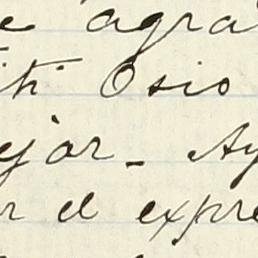 e agra
iti Osio
ejor_ Ay
r el expre